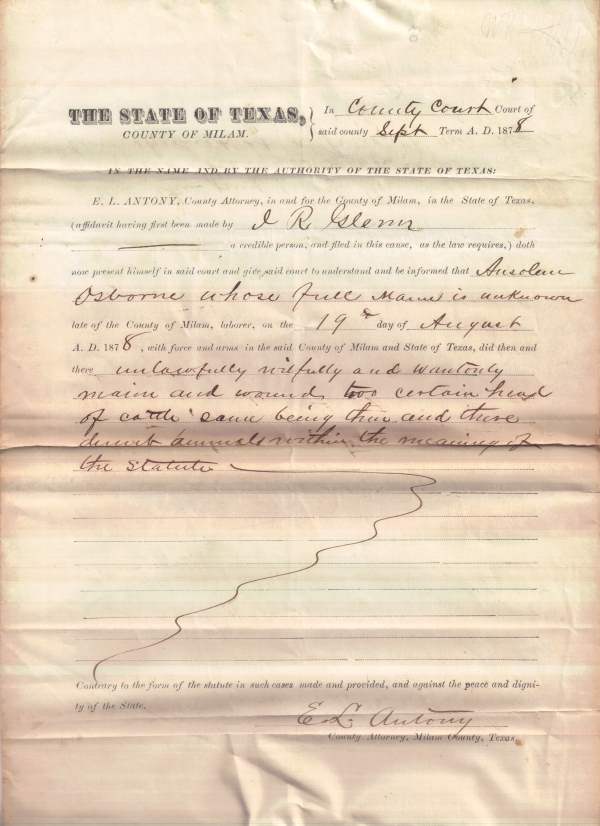 THE STATE OF TEXAS, } In County Court Court of
COUNTY OF MILAM. said county Sept Term A. D. 1878
IN THE NAME AND BY THE AUTHORITY OF THE STATE OF TEXAS:
E. L. ANTONY, County Attorney, in and for the County of Milam, in the State of Texas,
(affidavit having first been made by I R Glenn
a credible person, and filed in this cause, as the law requires,) doth
now present himself in said court and give said court to understand and be informed that Ansolem
Osborne whose full Name is unknown
late of the County of Milam, laborer, on the 19th day of August
A. D. 1878, with force and arms in the said County of Milam and State of Texas, did then and
there unlawfully wilfully and wantonly
maim and wound two certain head
of cattle same being then and there
dumb animals within the meaning of
the Statute
Contrary to the form of the statute in such cases made and provided, and against the peace and digni-
ty of the State.
E. L. Antony
County Attorney, Milam County, Texas.